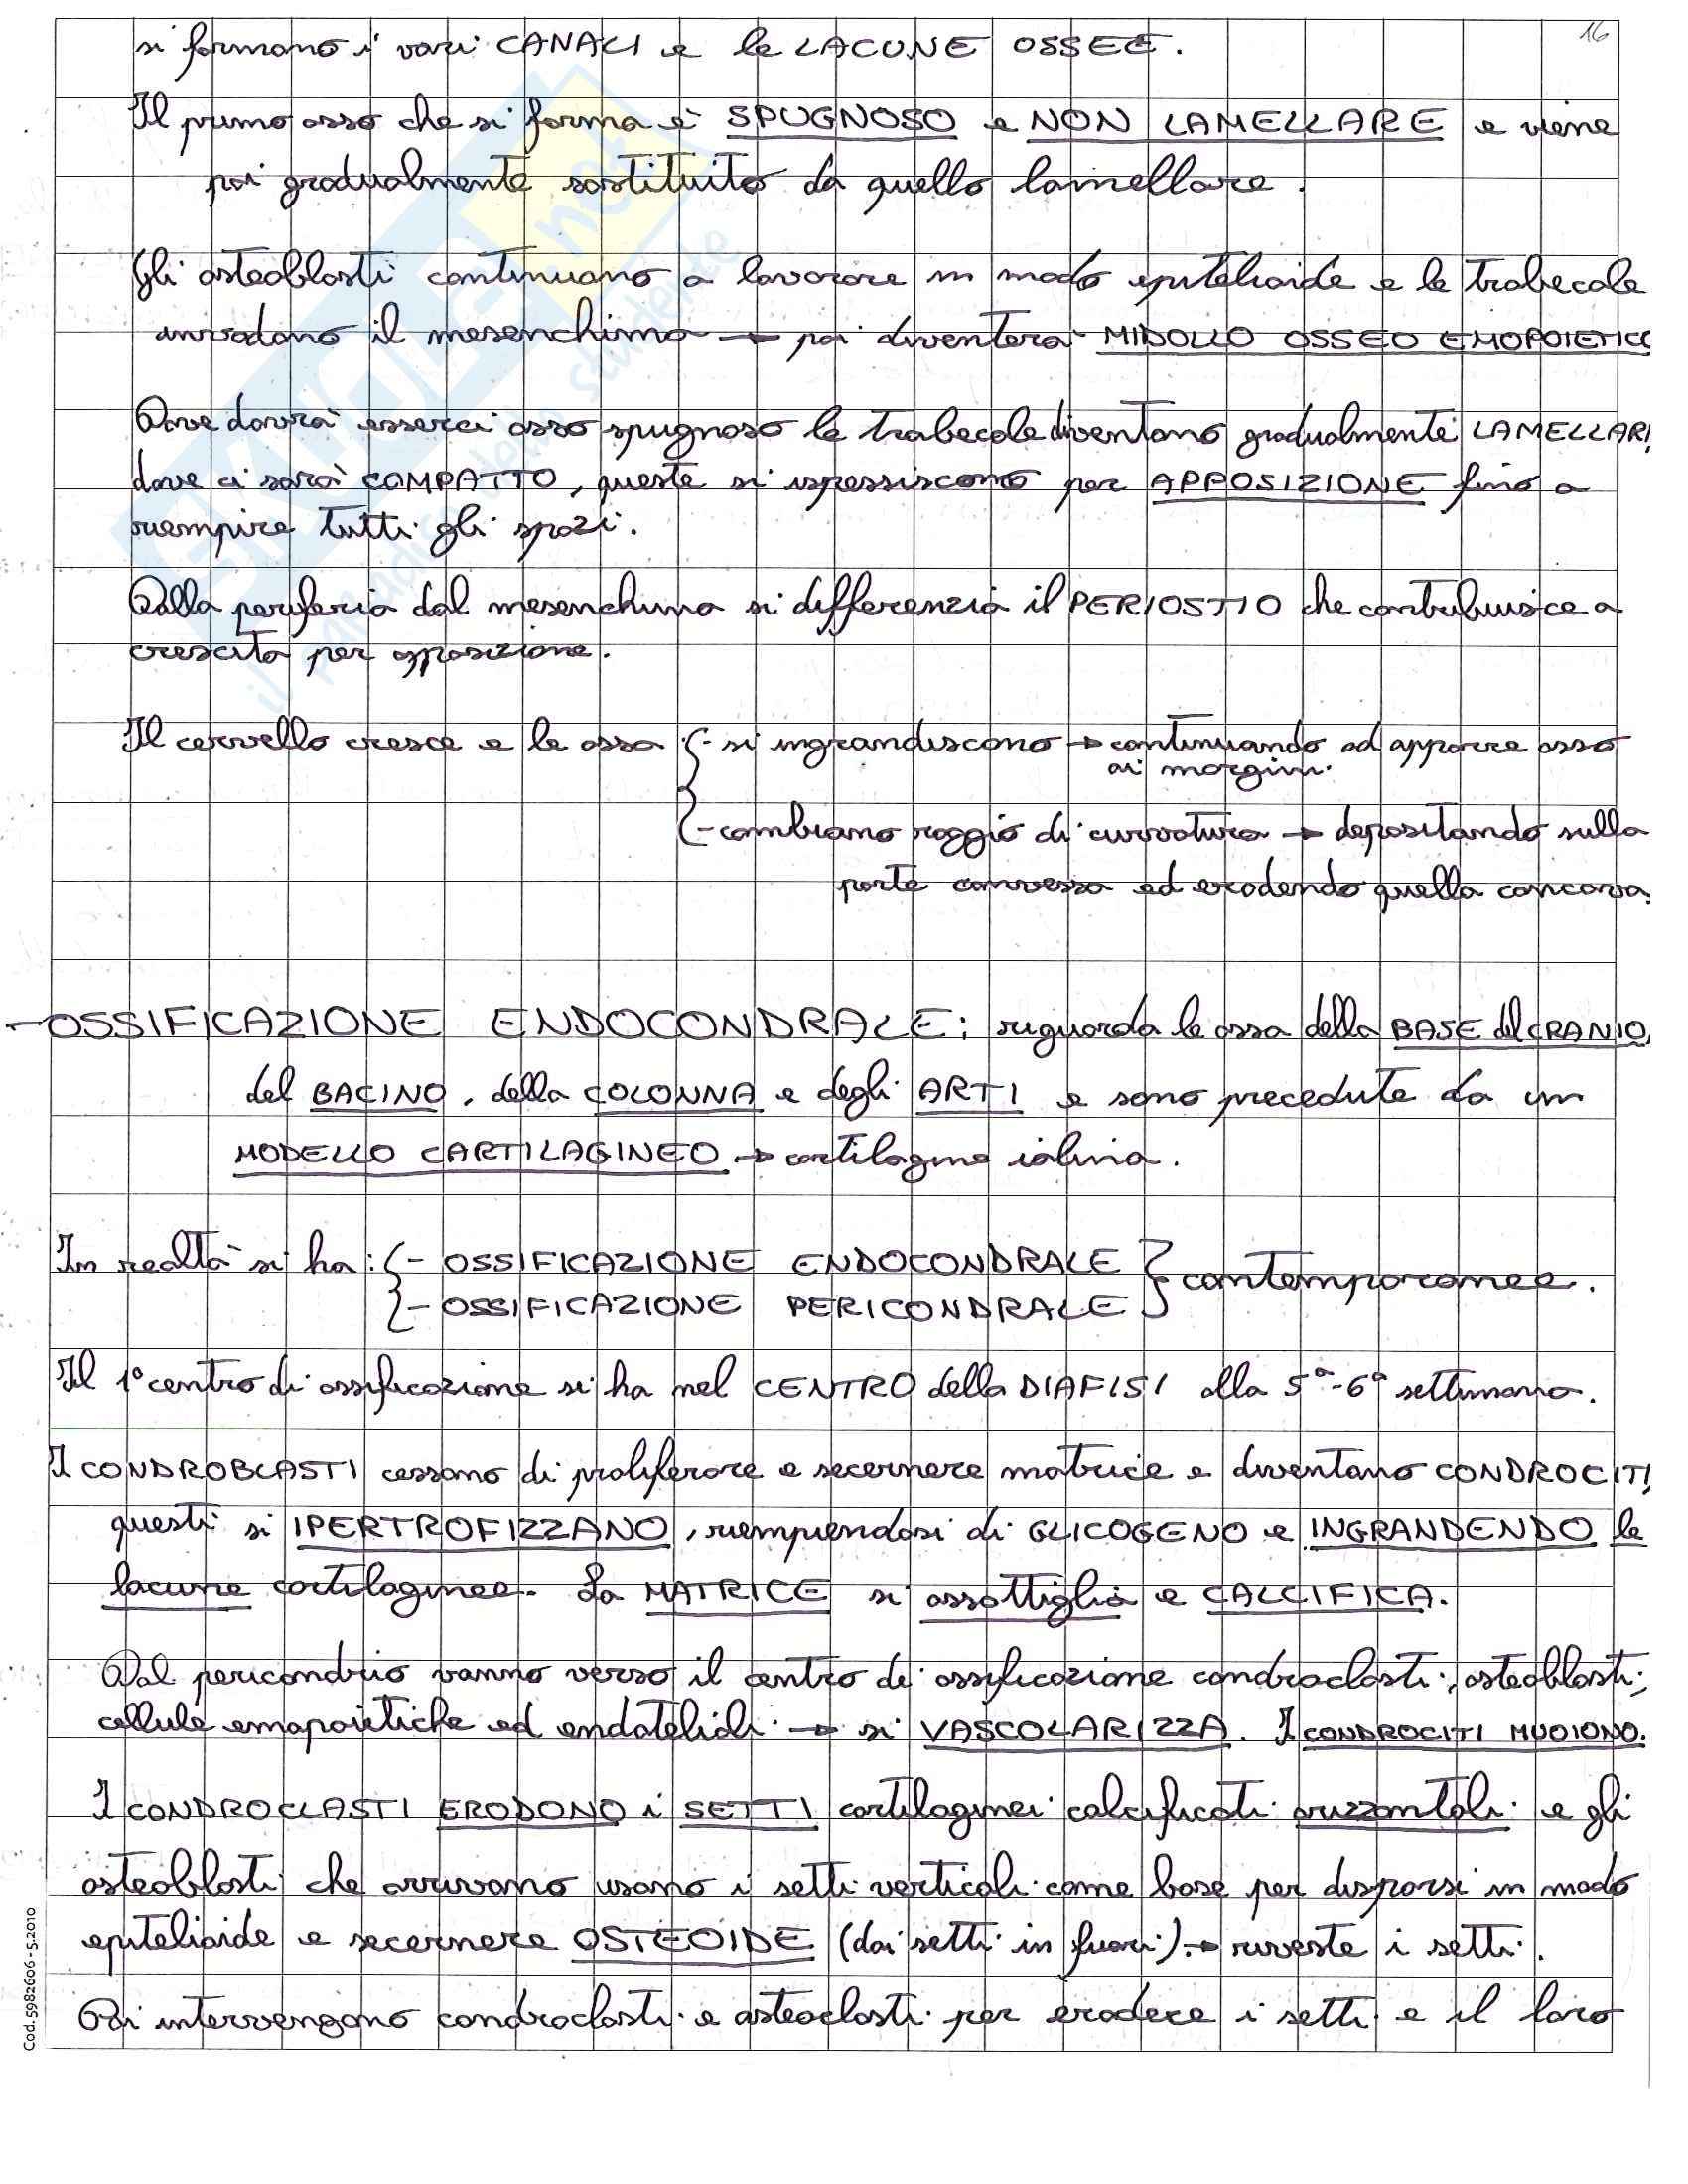 16
si formano i vari CANALI e le LACUNE OSSEE.
Il primo osso che si forma è SPUGNOSO e NON LAMELLARE e viene
poi gradualmente sostituito da quello lamellare.
Gli osteoblasti continuano a lavorare in modo epitelioide e le trabecole
invadono il mesenchima → poi diventerà MIDOLLO OSSEO EMOPOIETICO
Dove dovrà esserci osso spugnoso le trabecole diventano gradualmente LAMELLARI,
dove ci sarà COMPATTO, queste si ispessiscono per APPOSIZIONE fino a
riempire tutti gli spazi.
Dalla periferia dal mesenchima si differenzia il PERIOSTIO che contribuisce a
crescita per apposizione.
Il cervello cresce e le ossa { - si ingrandiscono → continuando ad apporre osso
ai margini.
- cambiano raggio di curvatura → depositando sulla
parte convessa ed erodendo quella concava.
- OSSIFICAZIONE ENDOCONDRALE: riguarda le ossa della BASE del CRANIO,
del BACINO, della COLONNA e degli ARTI e sono precedute da un
MODELLO CARTILAGINEO → cartilagine ialina.
In realtà si ha: { - OSSIFICAZIONE ENDOCONDRALE } contemporanee.
- OSSIFICAZIONE PERICONDRALE
Il 1° centro di ossificazione si ha nel CENTRO della DIAFISI alla 5ª-6ª settimana.
I CONDROBLASTI cessano di proliferare e secernere matrice e diventano CONDROCITI,
questi si IPERTROFIZZANO, riempiendosi di GLICOGENO e INGRANDENDO le
lacune cartilaginee. La MATRICE si assottiglia e CALCIFICA.
Dal pericondrio vanno verso il centro di ossificazione condroclasti, osteoblasti,
cellule emopoietiche ed endoteliali → si VASCOLARIZZA. I CONDROCITI MUOIONO.
I CONDROCLASTI ERODONO i SETTI cartilaginei calcificati orizzontali e gli
osteoblasti che arrivano usano i setti verticali come base per disporsi in modo
epitelioide e secernere OSTEOIDE (dai setti in fuori) → riveste i setti.
Poi intervengono condroclasti e osteoclasti per erodere i setti e il loro
Cod. 5982606 - 5.2010
il paradiso dello studente